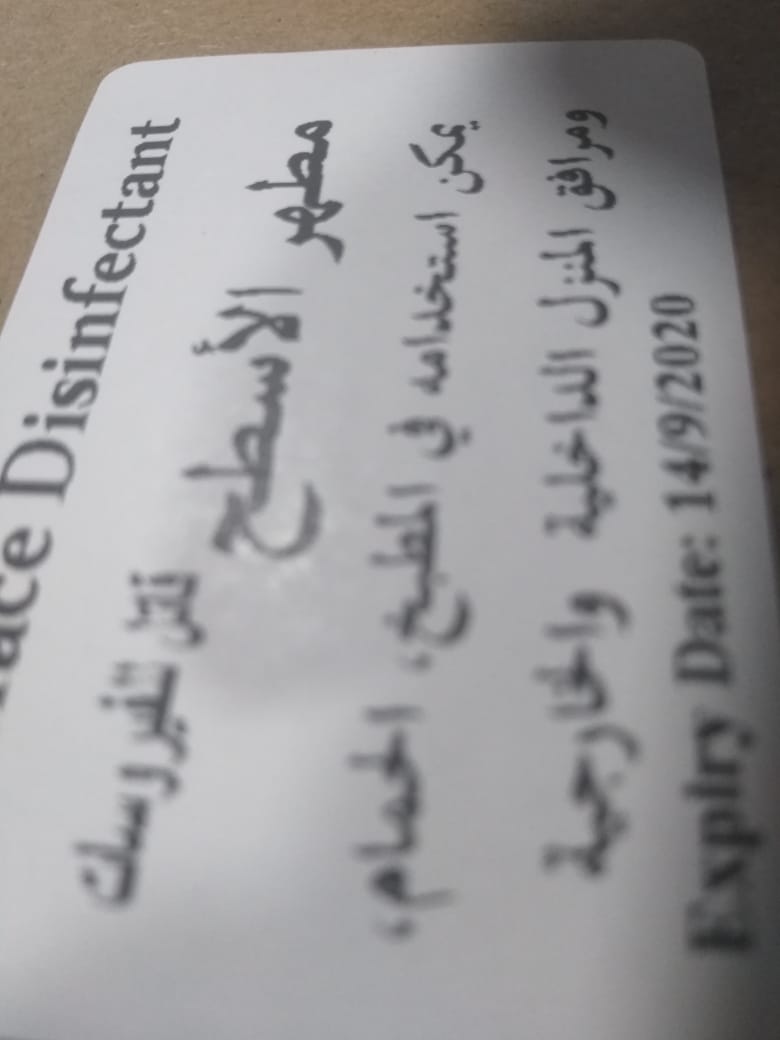 Disinfectant
مطهر الأسطح
يمكن استخدامه في المطبخ، الحمام،
ومرافق المنزل الداخلية والخارجية
Expiry Date: 14/9/2020